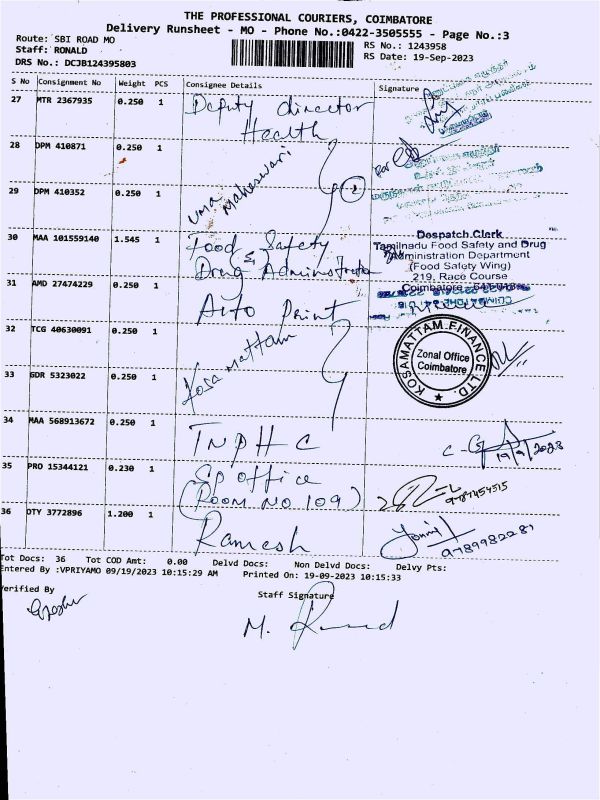 THE PROFESSIONAL COURIERS, COIMBATORE
Delivery Runsheet - MO - Phone No.:0422-3505555 - Page No.:3
Route: SBI ROAD MO
RS No.: 1243958
Staff: RONALD
RS Date: 19-Sep-2023
DRS No.: DCJB124395803
S No Consignment No Weight PCS Consignee Details Signature
27 MTR 2367935 0.250 1 Deputy director
Health
28 DPM 410871 0.250 1
29 DPM 410352 0.250 1 Uma Maheswari 2
30 MAA 101559140 1.545 1 Food & Safety
Drug Administration
Despatch Clerk
Tamilnadu Food Safety and Drug
Administration Department
(Food Safety Wing)
219, Race Course
Coimbatore
31 AMD 27474229 0.250 1 Auto Print
32 TCG 40630091 0.250 1
KOSAMATTAM FINANCE LTD.
Zonal Office
Coimbatore
33 GDR 5323022 0.250 1 Kosamattam
34 MAA 568913672 0.250 1 TNPHC
19/9/2023
35 PRO 15344121 0.230 1 SP office
(Room No 109)
9787454515
36 OTY 3772896 1.200 1 Ramesh
9789982281
Tot Docs: 36 Tot COD Amt: 0.00 Delvd Docs: Non Delvd Docs: Delvy Pts:
Entered By :VPRIYAMO 09/19/2023 10:15:29 AM Printed On: 19-09-2023 10:15:33
Verified By
Staff Signature